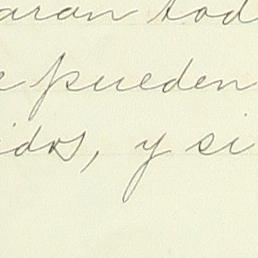 aran tod
e pueden
idos, y si